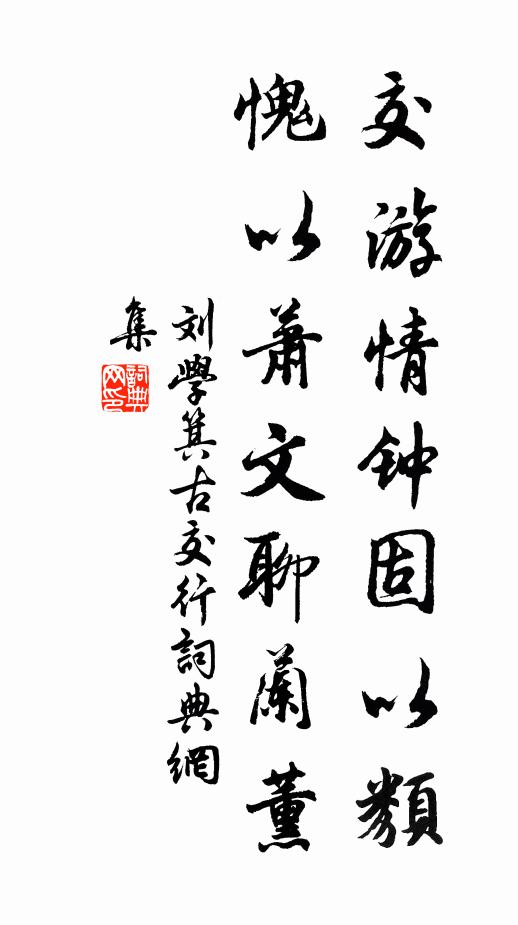 交游情钟固以類
愧以蕭文聊蘭薰
刘學箕古交行詞典網
集
詞典网印